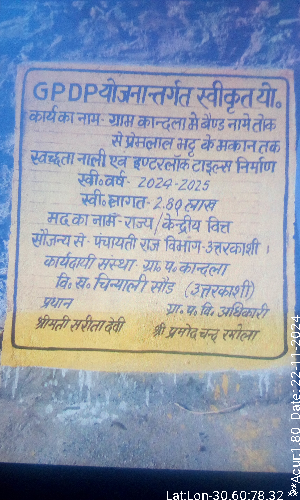 GPDP योजनान्तर्गत स्वीकृत यो.
कार्य का नाम- ग्राम कान्दला मे बैण्ड नामे तोक
से प्रेमलाल भट्ट के मकान तक
स्वच्छता नाली एवं इण्टरलॉक टाइल्स निर्माण
स्वी. वर्ष- 2024-2025
स्वी. लागत- 2.80 लाख
मद का नाम- राज्य/केन्द्रीय वित्त
सौजन्य से- पंचायती राज विभाग-उत्तरकाशी।
कार्यदायी संस्था- ग्रा. पं. कान्दला
वि. ख. चिन्याली सौड (उत्तरकाशी)
प्रधान ग्रा. प. वि. अधिकारी
श्रीमती सरीता देवी श्री प्रमोद चन्द रमोला
**Acur1.80 Date:22-11-2024
LatLon-30.60:78.32